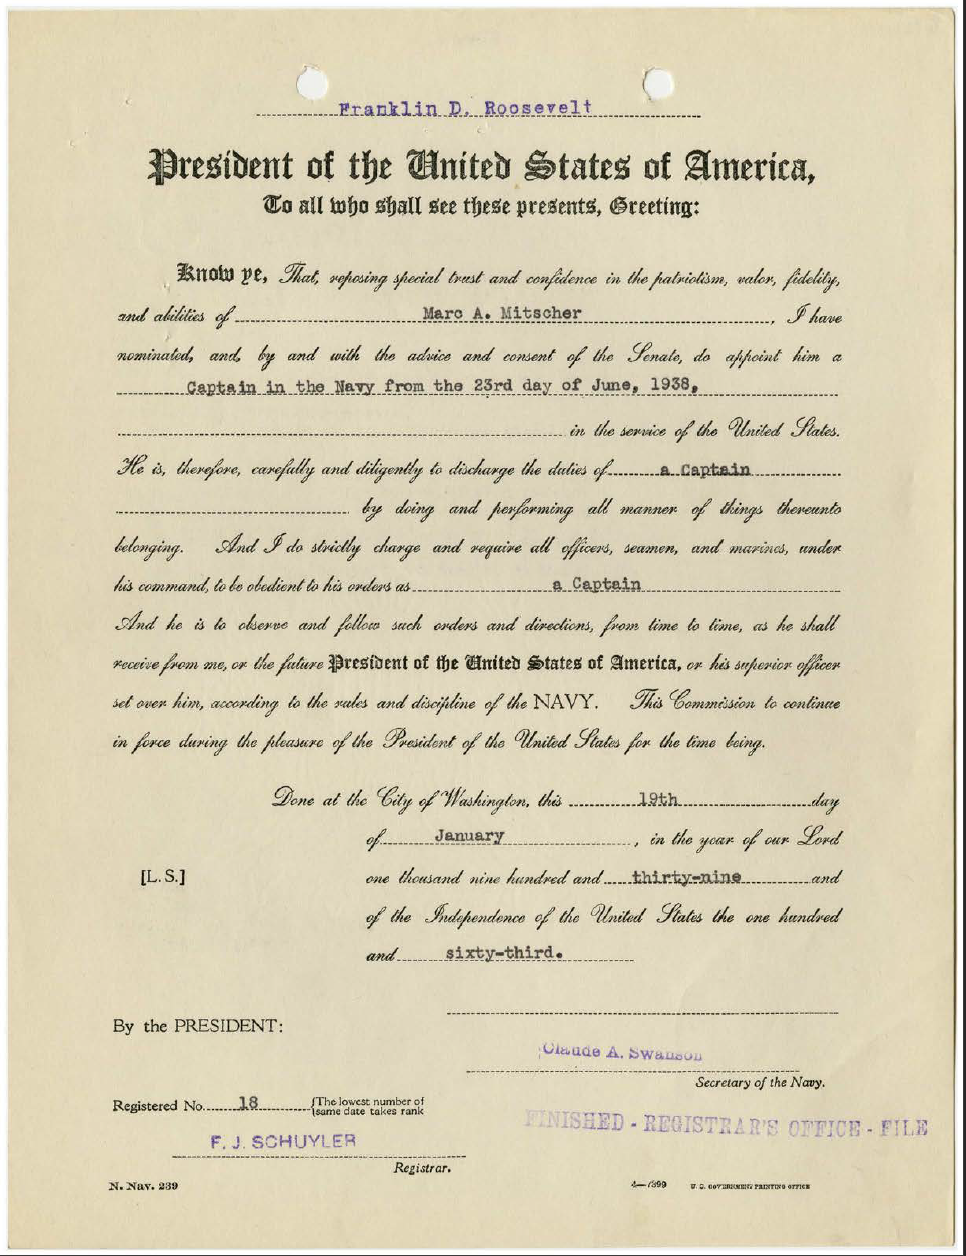 Franklin D. Roosevelt
President of the United States of America,
To all who shall see these presents, Greeting:
Know ye, That, reposing special trust and confidence in the patriotism, valor, fidelity,
and abilities of Marc A. Mitscher, I have
nominated, and, by and with the advice and consent of the Senate, do appoint him a
Captain in the Navy from the 23rd day of June, 1938,
in the service of the United States.
He is, therefore, carefully and diligently to discharge the duties of a Captain
by doing and performing all manner of things thereunto
belonging. And I do strictly charge and require all officers, seamen, and marines, under
his command, to be obedient to his orders as a Captain
And he is to observe and follow such orders and directions, from time to time, as he shall
receive from me, or the future President of the United States of America, or his superior officer
set over him, according to the rules and discipline of the NAVY. This Commission to continue
in force during the pleasure of the President of the United States for the time being.
Done at the City of Washington, this 19th day
of January, in the year of our Lord
[L.S.] one thousand nine hundred and thirty-nine and
of the Independence of the United States the one hundred
and sixty-third.
By the PRESIDENT:
Claude A. Swanson
Secretary of the Navy.
Registered No. 18 {The lowest number of
same date takes rank
FINISHED - REGISTRAR'S OFFICE - FILE
F. J. SCHUYLER
Registrar.
N. Nav. 239
U. S. GOVERNMENT PRINTING OFFICE